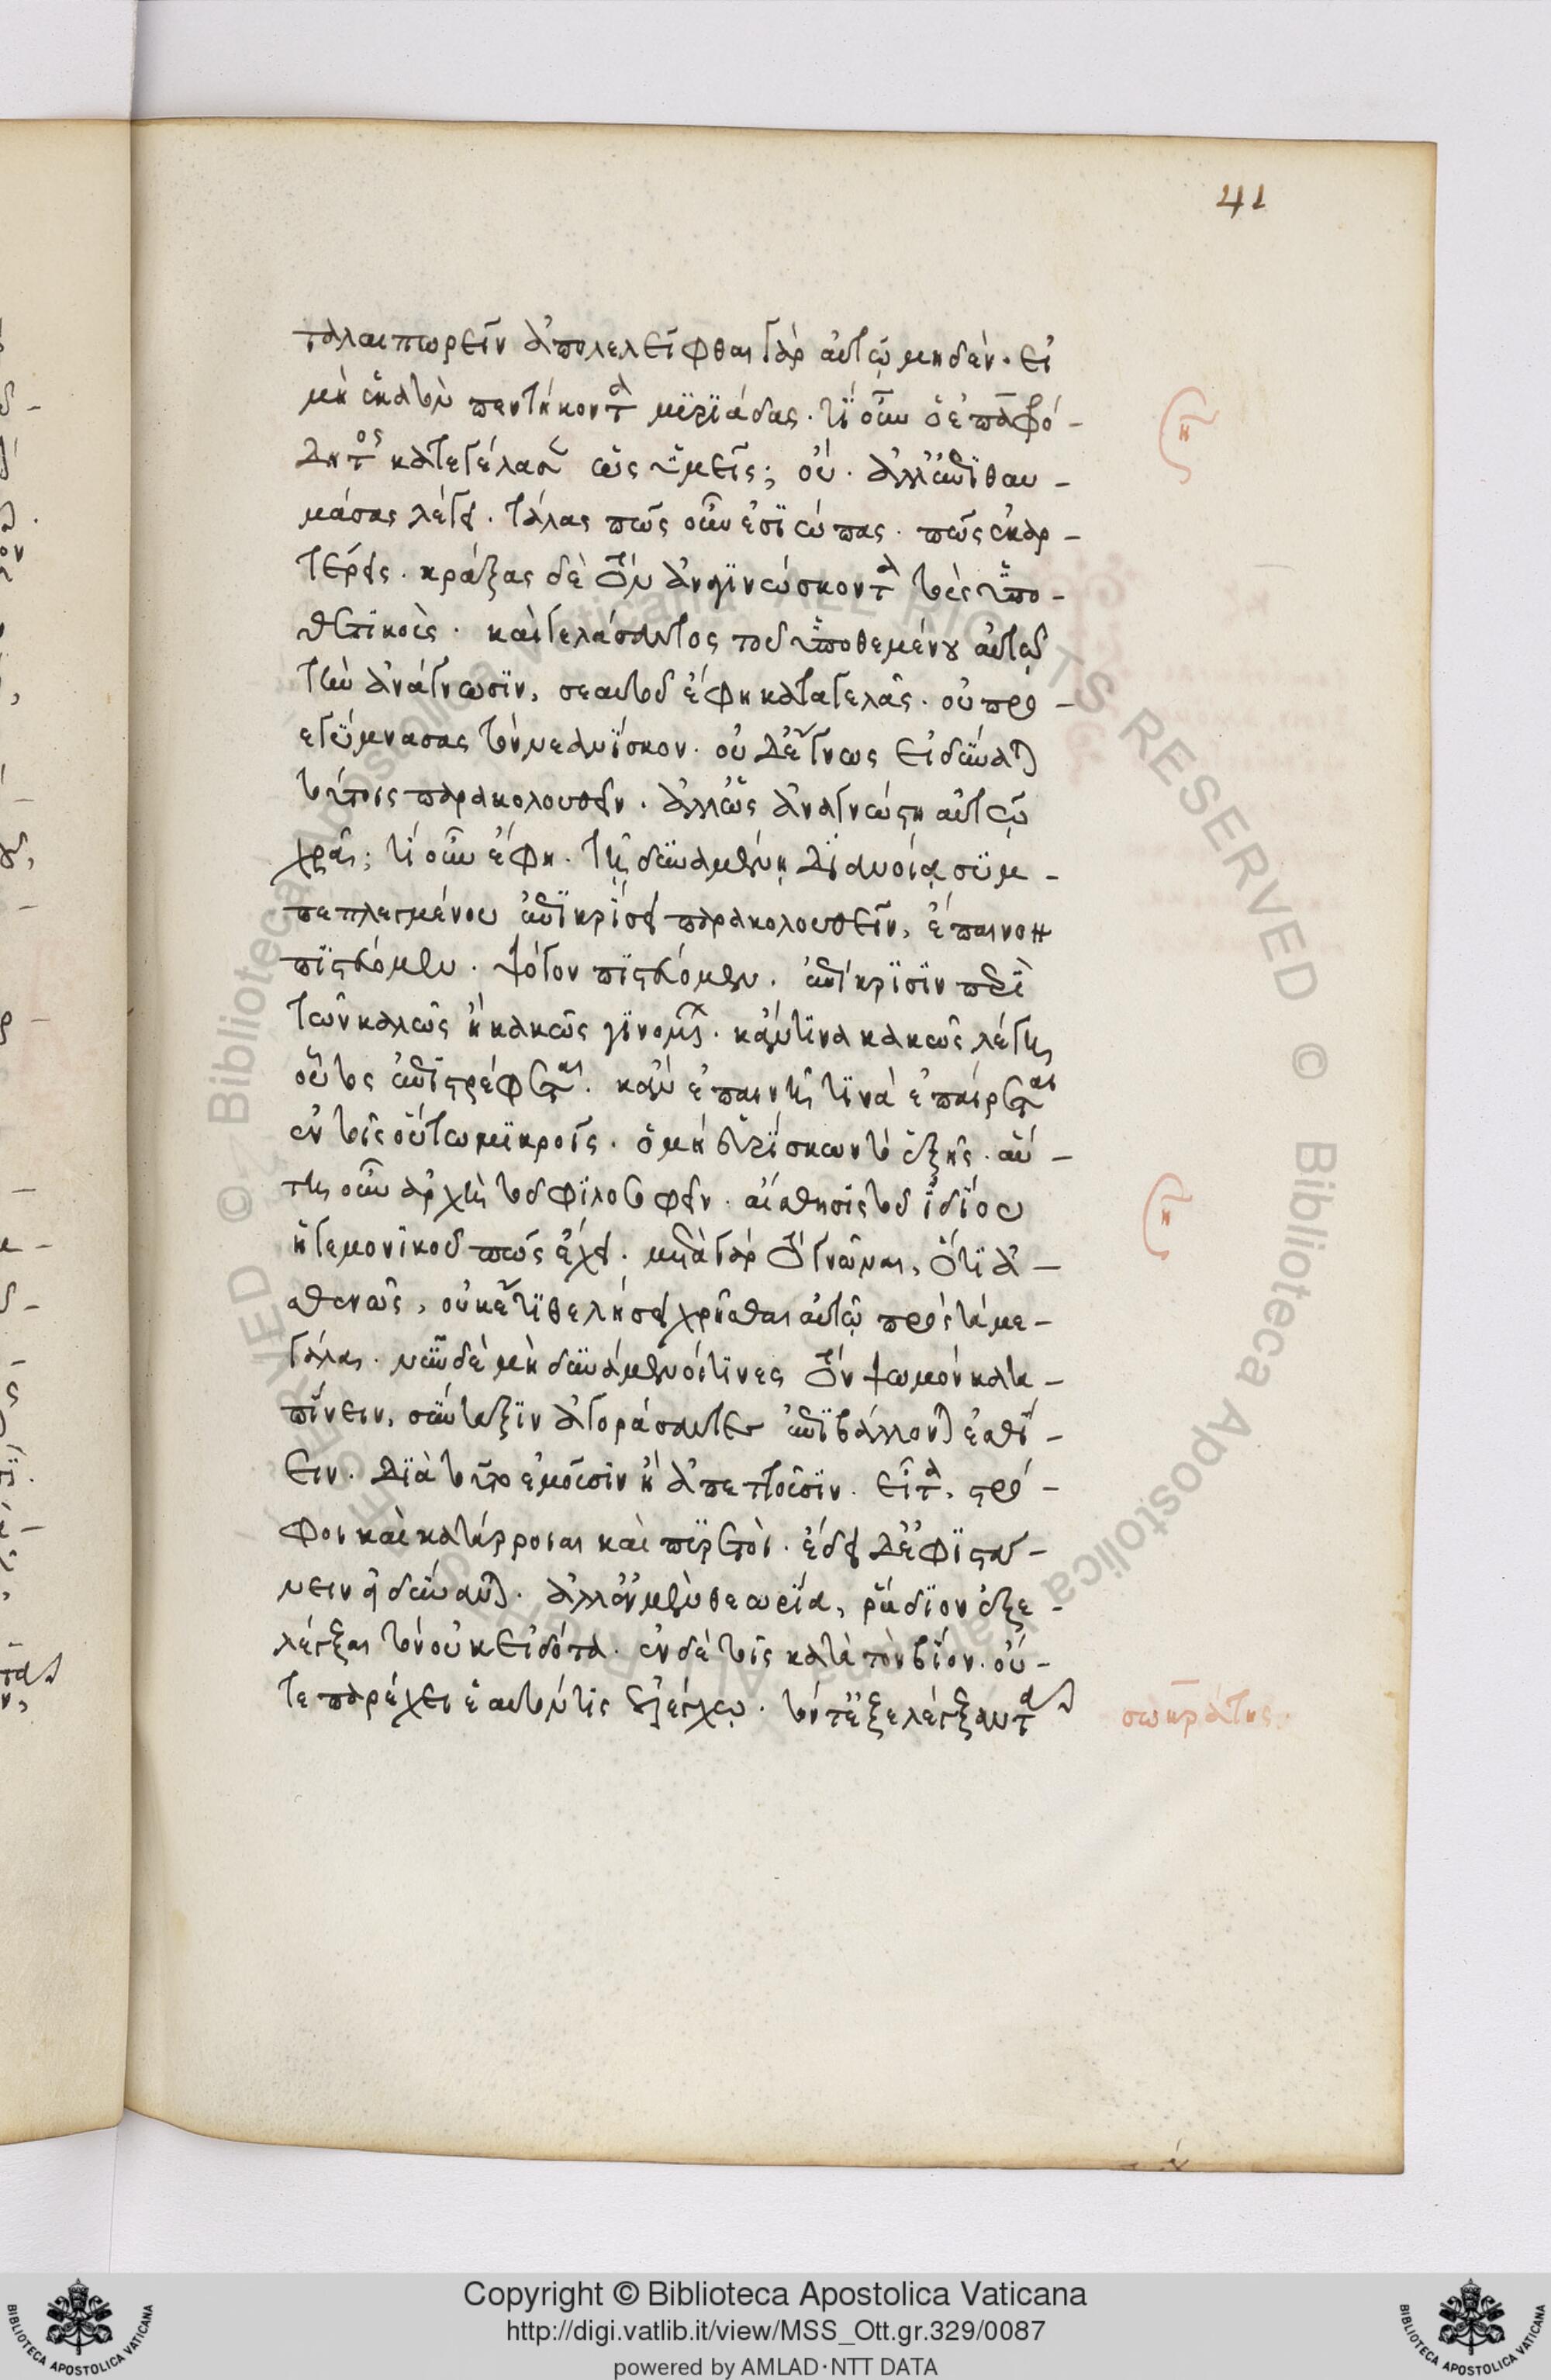 41
ταλαιπωρεῖν ἀπολελεῖφθαι γὰρ αὐτῷ μηδὲν. εἰ
μὴ ἑκατὸν πεντήκοντα μϋριάδας. τί οὖν ὁ ἐπαφρό-
διτος κατεγέλασεν ὡς ὑμεῖς; οὐ. ἀλλ' ἐπιθαυ-
μάσας λέγει. τάλας πῶς οὖν ἐσιώπας. πῶς ἐκαρ-
τέρεις. κράξας δὲ τὸν ἀναγινώσκοντα τοὺς ὑπο-
θετικοὺς. καὶ γελάσαντος τοῦ ὑποθεμένου αὐτῷ
τὴν ἀνάγνωσιν, σεαυτοῦ ἔφη καταγελᾶς. οὐ προ-
εγύμνασας τὸν νεανίσκον. οὐδ' ἔγνως εἰ δύναται
τούτοις παρακολουθεῖν. ἀλλ' ὡς ἀναγνώστῃ αὐτῷ
χρᾶι; τί οὖν ἔφη. τῇ δυναμένῃ διανοίᾳ συμ-
πεπλεγμένου ἐπικρίσει παρακολουθεῖν, ἔπαινον
πιστεύομεν. ψόγον πιστεύομεν. ἐπίκρισιν περὶ
τῶν καλῶς ἢ κακῶς γινομένων. κἄν τινα κακῶς λέγῃ
οὗτος ἐπιστρέφεται. κἂν ἐπαινῇ τινὰ ἐπαίρεται
ἐν τοῖς οὕτω μικροῖς. ὁ μὴ εὑρίσκων τὸ ἑξῆς. αὕ-
τη οὖν ἀρχὴ τοῦ φιλοσοφεῖν. αἴσθησις τοῦ ἰδίου
ἡγεμονικοῦ πῶς ἔχει. μετὰ γὰρ τὸ γνῶναι, ὅτι ἀ-
σθενῶς, οὐκ ἔτι θελήσει χρῆσθαι αὐτῷ πρὸς τὰ με-
γάλα. νῦν δὲ μὴ δυνάμενοί τινες τὸν ψωμὸν κατα-
πίνειν, σύνταξιν ἀγοράσαντες ἐπιβάλλονται ἐσθί-
ειν. διὰ τοῦτο ἐμοῦσιν ἢ ἀπεπτοῦσιν. εἶτα, στρό-
φοι καὶ κατάρροιαι καὶ πυρετοὶ. ἔδει δ' ἐφιστά-
νειν εἰ δύναται. ἀλλ' ἐν μὲν θεωρίᾳ, ῥᾴδιον ἐξε-
λέγξαι τὸν οὐκ εἰδότα. ἐν δὲ τοῖς κατὰ τὸν βίον. οὔ-
τε παρέχει ἑαυτόν τις ἐλέγχῳ. τόν τ' ἐξελέγξαντα
σωκράτης.